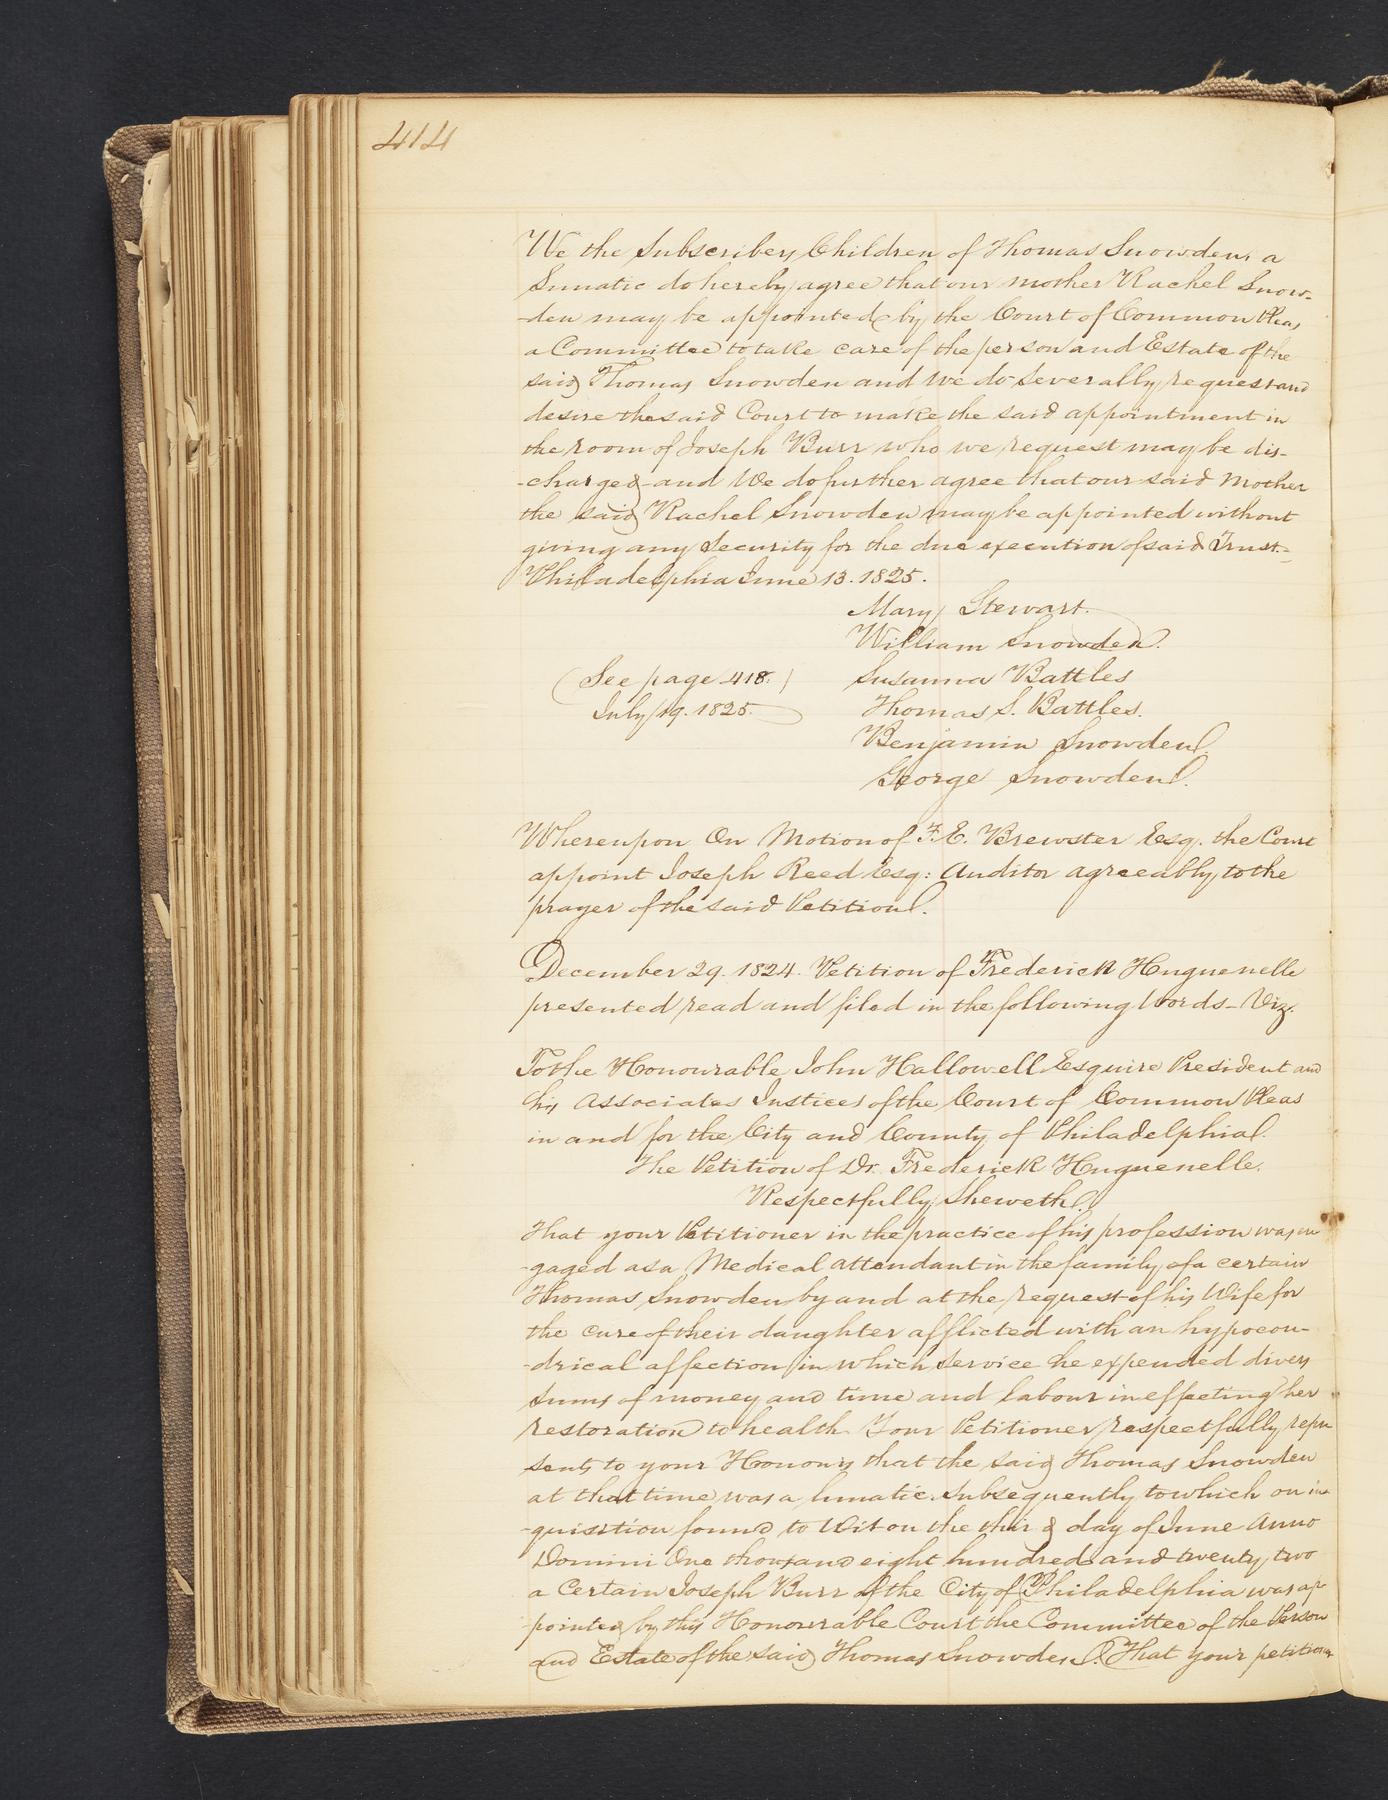 414
We the Subscribers Children of Thomas Snowden, a
Lunatic do hereby agree that our mother Rachel Snow-
-den may be appointed by the Court of Common Pleas
a Committee to take care of the person and Estate of the
said Thomas Snowden and we do severally request and
desire the said Court to make the said appointment in
the room of Joseph Burr who we request may be dis-
-charged and We do further agree that our said Mother
the said Rachel Snowden may be appointed without
giving any Security for the due execution of said Trust.=
Philadelphia June 13. 1825.
Mary Stewart.
William Snowden.
(See page 418.) Susanna Battles
July 19. 1825. Thomas S. Battles.
Benjamin Snowden.
George Snowden.
Whereupon On Motion of F. E. Brewster Esq. the Court
appoint Joseph Reed Esq: Auditor agreeably to the
prayer of the said Petition.
December 29. 1824. Petition of Frederick Huguenelle
presented read and filed in the following Words - Viz.
To the Honourable John Hallowell Esquire President and
his Associates Justices of the Court of Common Pleas
in and for the City and County of Philadelphia.
The Petition of Dr. Frederick Huguenelle.
Respectfully Sheweth.
That your Petitioner in the practice of his profession was en
-gaged as a Medical attendant in the family of a certain
Thomas Snowden by and at the request of his Wife for
the cure of their daughter afflicted with an hypocon-
-drical affection in which service he expended divers
sums of money and time and labour in effecting her
restoration to health. Your Petitioner respectfully repre
sents to your Honours that the said Thomas Snowden
at that time was a lunatic. Subsequently to which on in-
-quisition found to Wit on the third day of June Anno
Domini One thousand eight hundred and twenty two
a Certain Joseph Burr of the City of Philadelphia was ap
pointed by this Honourable Court the Committee of the Person
and Estate of the said Thomas Snowden. That your petitioner